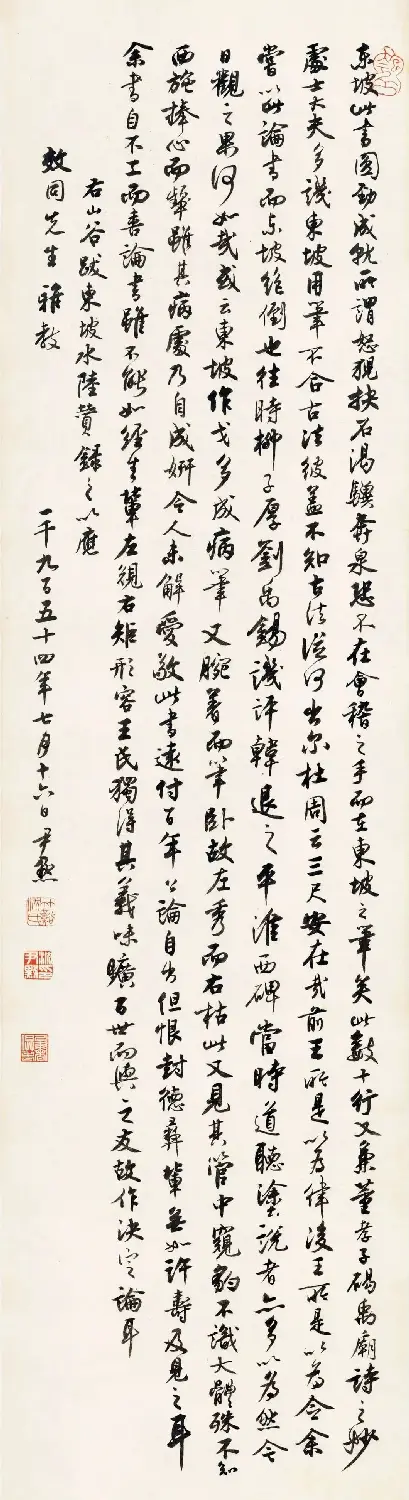 東坡此書圓勁成就所謂怒猊抉石渴驥奔泉恐不在會稽之手而在東坡之筆矣此數十行又兼董孝子碣禹廟詩之妙
處士大夫多譏東坡用筆不合古法彼蓋不知古法從何出尔杜周云三尺安在哉前王所是以為律後王所是以為令余
嘗以此論書而東坡絕倒也往時柳子厚劉禹錫譏評韓退之平淮西碑當時道聽塗說者亦多以為然今
日觀之果何如哉或云東坡作戈多成病筆又腕著而筆卧故左秀而右枯此又見其管中窺豹不識大體殊不知
西施捧心而顰雖其病處乃自成妍今人未解愛敬此書遠付百年公論自出但恨封德彝輩無如許壽及見之耳
余書自不工而喜論書雖不能如經生輩左規右矩形容王氏獨得其義味曠百世而與之友故作決定論耳
右山谷跋東坡水陸贊錄之以應
效同先生雅教
一千九百五十四年七月十六日尹默